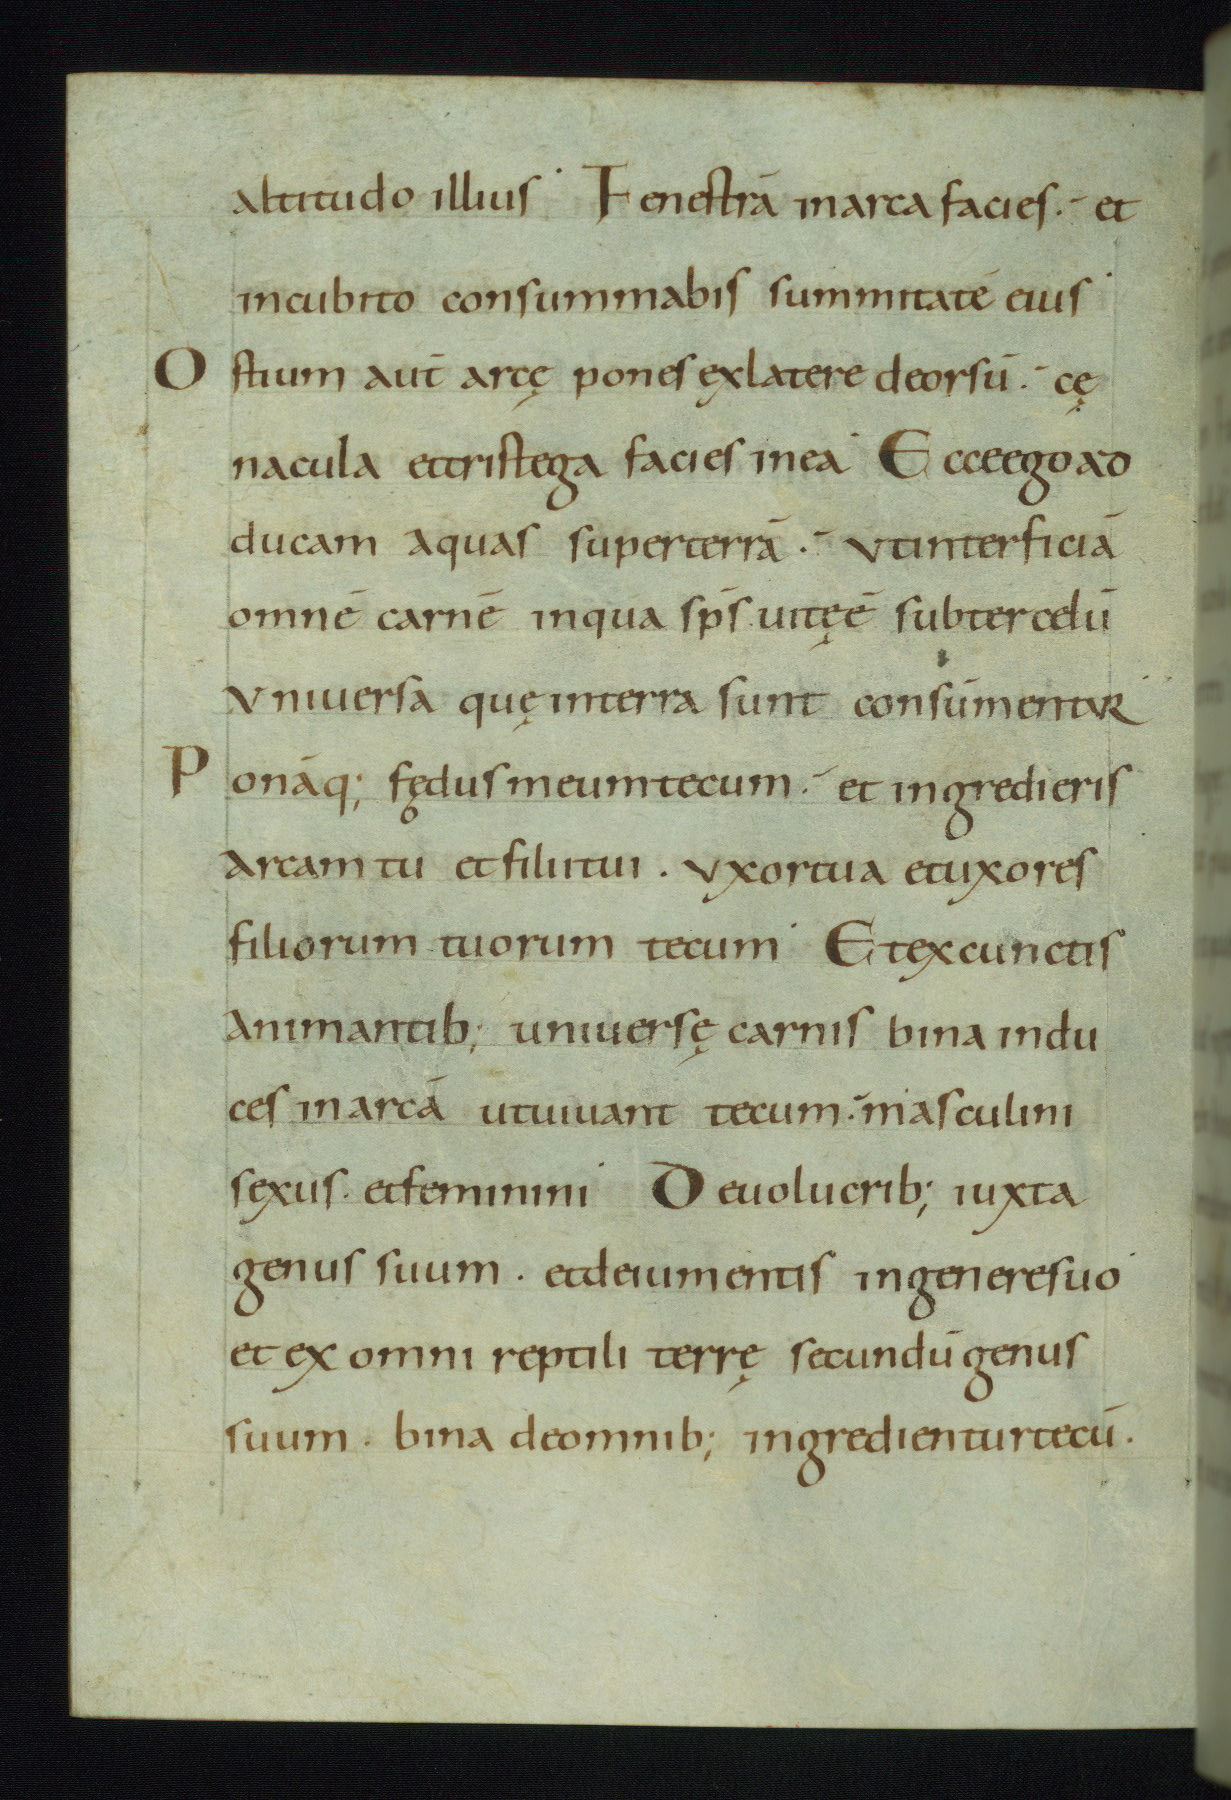 altitudo illius· Fenestrā inarca facies.· et
incubito consummabis summitatē eius·
Ostium aut̄ arcę pones exlatere deorsū.· cę
nacula ettristega facies inea· Ecceegoad
ducam aquas superterrā.· Utinterficiā
omnē carnē inqua sp̄s uitęē subter celū
Vniuersa quę interra sunt consūmentur·
Ponāq; fędus meumtecum.· et ingredieris
arcam tu et filiitui. Vxortua etuxores
filiorum tuorum tecum· Etexcunctis
animantib; uniuersę carnis bina indu
ces inarcā utuiuant tecum.· masculini
sexus. etfeminini· Deuolucrib; iuxta
genus suum. etdeiumentis ingeneresuo·
et ex omni reptili terrę secundū genus
suum. bina deomnib; ingredienturtecū.